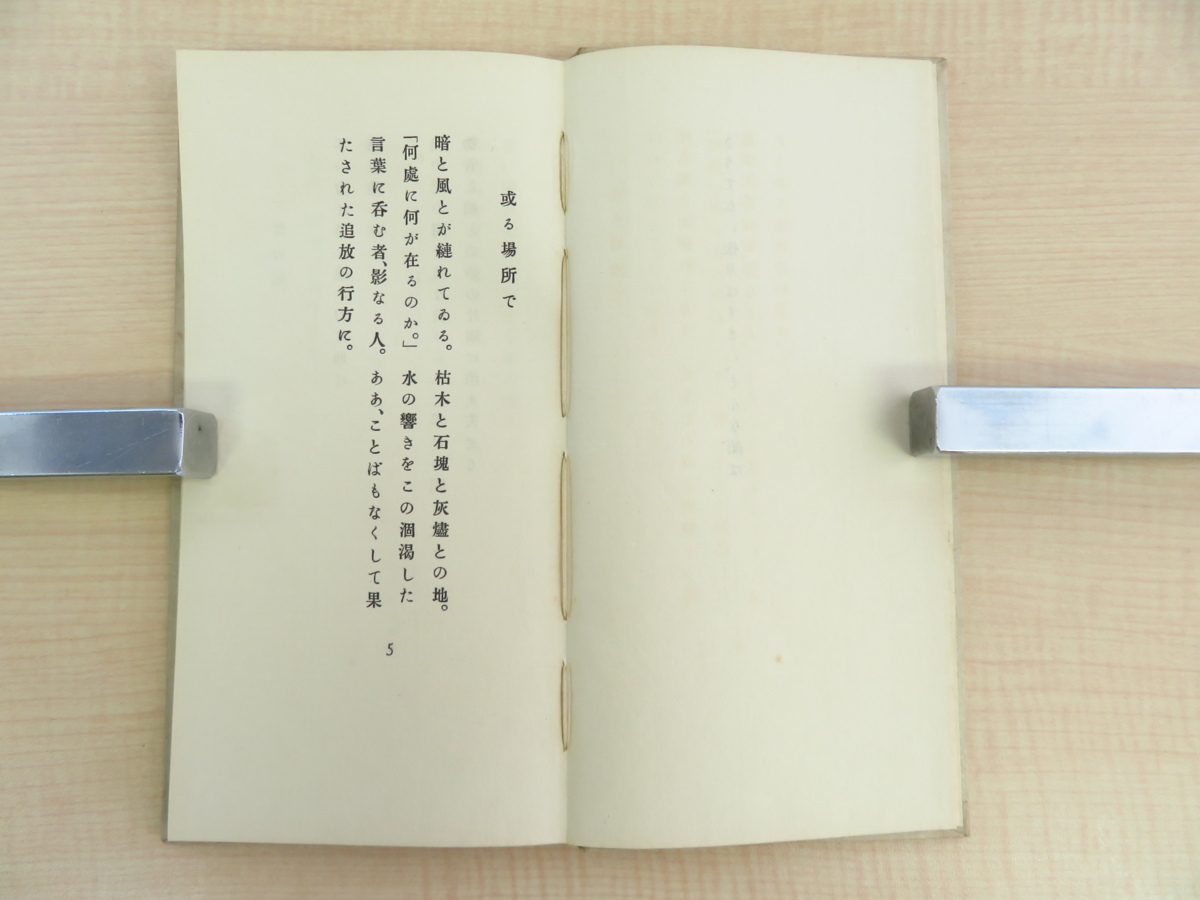 或る場所で
暗と風とが縺れてゐる。枯木と石塊と灰燼との地。
「何處に何が在るのか。」水の響きをこの涸渇した
言葉に呑む者、影なる人。ああ、ことばもなくして果
たされた追放の行方に。
5